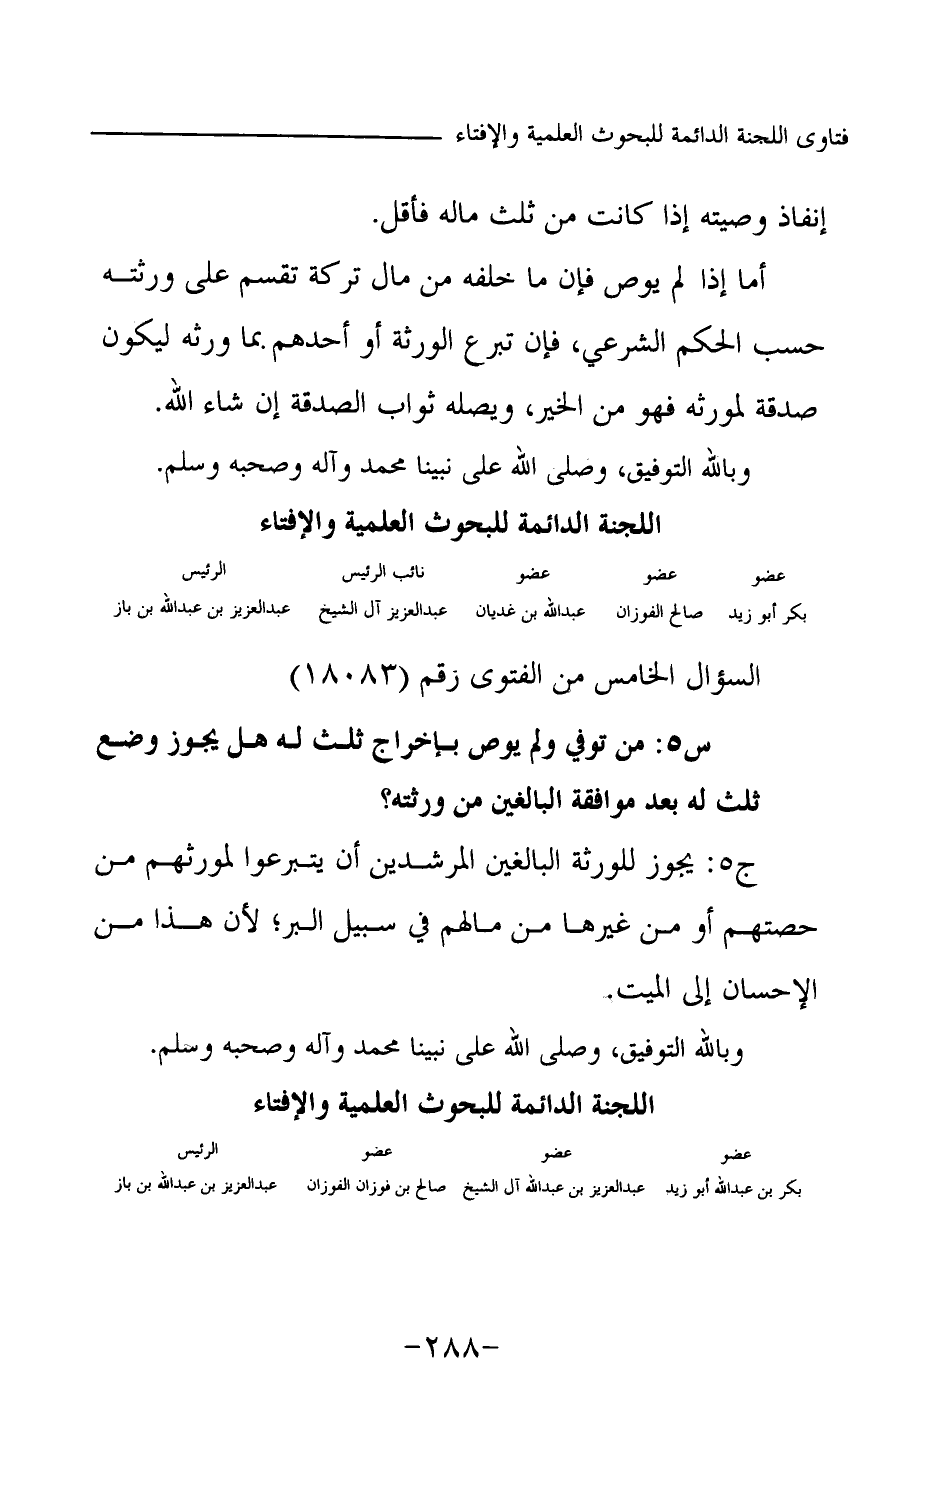 فتاوى اللجنة الدائمة للبحوث العلمية والإفتاء
إنفاذ وصيته إذا كانت من ثلث ماله فأقل.
أما إذا لم يوص فإن ما خلفه من مال تركة تقسم على ورثتـه
حسب الحكم الشرعي، فإن تبرع الورثة أو أحدهم بما ورثه ليكون
صدقة لمورثه فهو من الخير، ويصله ثواب الصدقة إن شاء الله.
وبالله التوفيق، وصلى الله على نبينا محمد وآله وصحبه وسلم.
اللجنة الدائمة للبحوث العلمية والإفتاء
عضو عضو عضو نائب الرئيس الرئيس
بكر أبو زيد صالح الفوزان عبدالله بن غديان عبدالعزيز آل الشيخ عبدالعزيز بن عبدالله بن باز
السؤال الخامس من الفتوى رقم (١٨٠٨٣)
س٥: من توفي ولم يوص بـإخراج ثلـث لـه هـل يجـوز وضـع
ثلث له بعد موافقة البالغين من ورثته؟
ج٥: يجوز للورثة البالغين المرشـدين أن يتـبرعوا لمورثهـم مـن
حصتهـم أو مـن غيرهـا مـن مـالهم في سـبيل الـبر؛ لأن هـذا مـن
الإحسان إلى الميت.
وبالله التوفيق، وصلى الله على نبينا محمد وآله وصحبه وسلم.
اللجنة الدائمة للبحوث العلمية والإفتاء
عضو عضو عضو الرئيس
بكر بن عبدالله أبو زيد عبدالعزيز بن عبدالله آل الشيخ صالح بن فوزان الفوزان عبدالعزيز بن عبدالله بن باز
-٢٨٨-